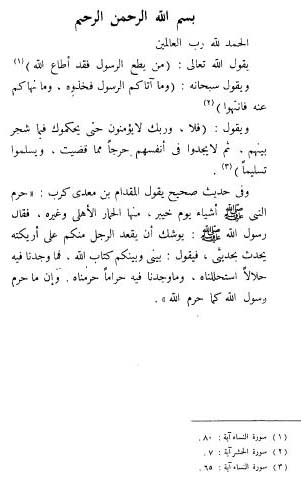 بسم الله الرحمن الرحيم
الحمد لله رب العالمين
يقول الله تعالى : (من يطع الرسول فقد أطاع الله) (١)
ويقول سبحانه : (وما آتاكم الرسول فخذوه ، وما نهاكم
عنه فانتهوا) (٢)
ويقول : (فلا ، وربك لايؤمنون حتى يحكموك فيما شجر
بينهم ، ثم لايجدوا فى أنفسهم حرجاً مما قضيت ، ويسلموا
تسليماً) (٣) .
وفى حديث صحيح يقول المقدام بن معدى كرب : « حرم
النبى ﷺ أشياء يوم خيبر ، منها الحمار الأهلى وغيره . فقال
رسول الله ﷺ : يوشك أن يقعد الرجل منكم على أريكته
يحدث بحديثى ، فيقول : بينى وبينكم كتاب الله . فما وجدنا فيه
حلالاً استحللناه ، وماوجدنا فيه حراماً حرمناه . وإن ما حرم
رسول الله كما حرم الله » .
(١) سورة النساء آية : ٨٠ .
(٢) سورة الحشر آية : ٧ .
(٣) سورة النساء آية : ٦٥ .